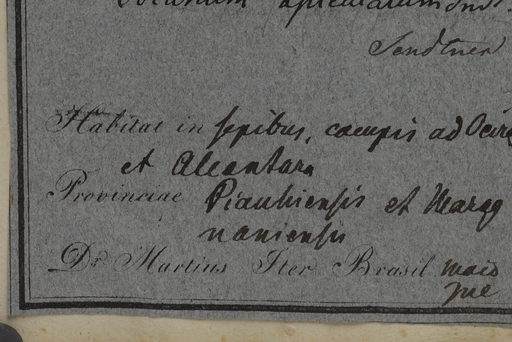 Sendtner
Habitat in sepibus, campis ad Oeira
et Alcantara
Provinciae Piauhiensis et Marag
naniensis
Dr. Martius Iter Brasil. maio